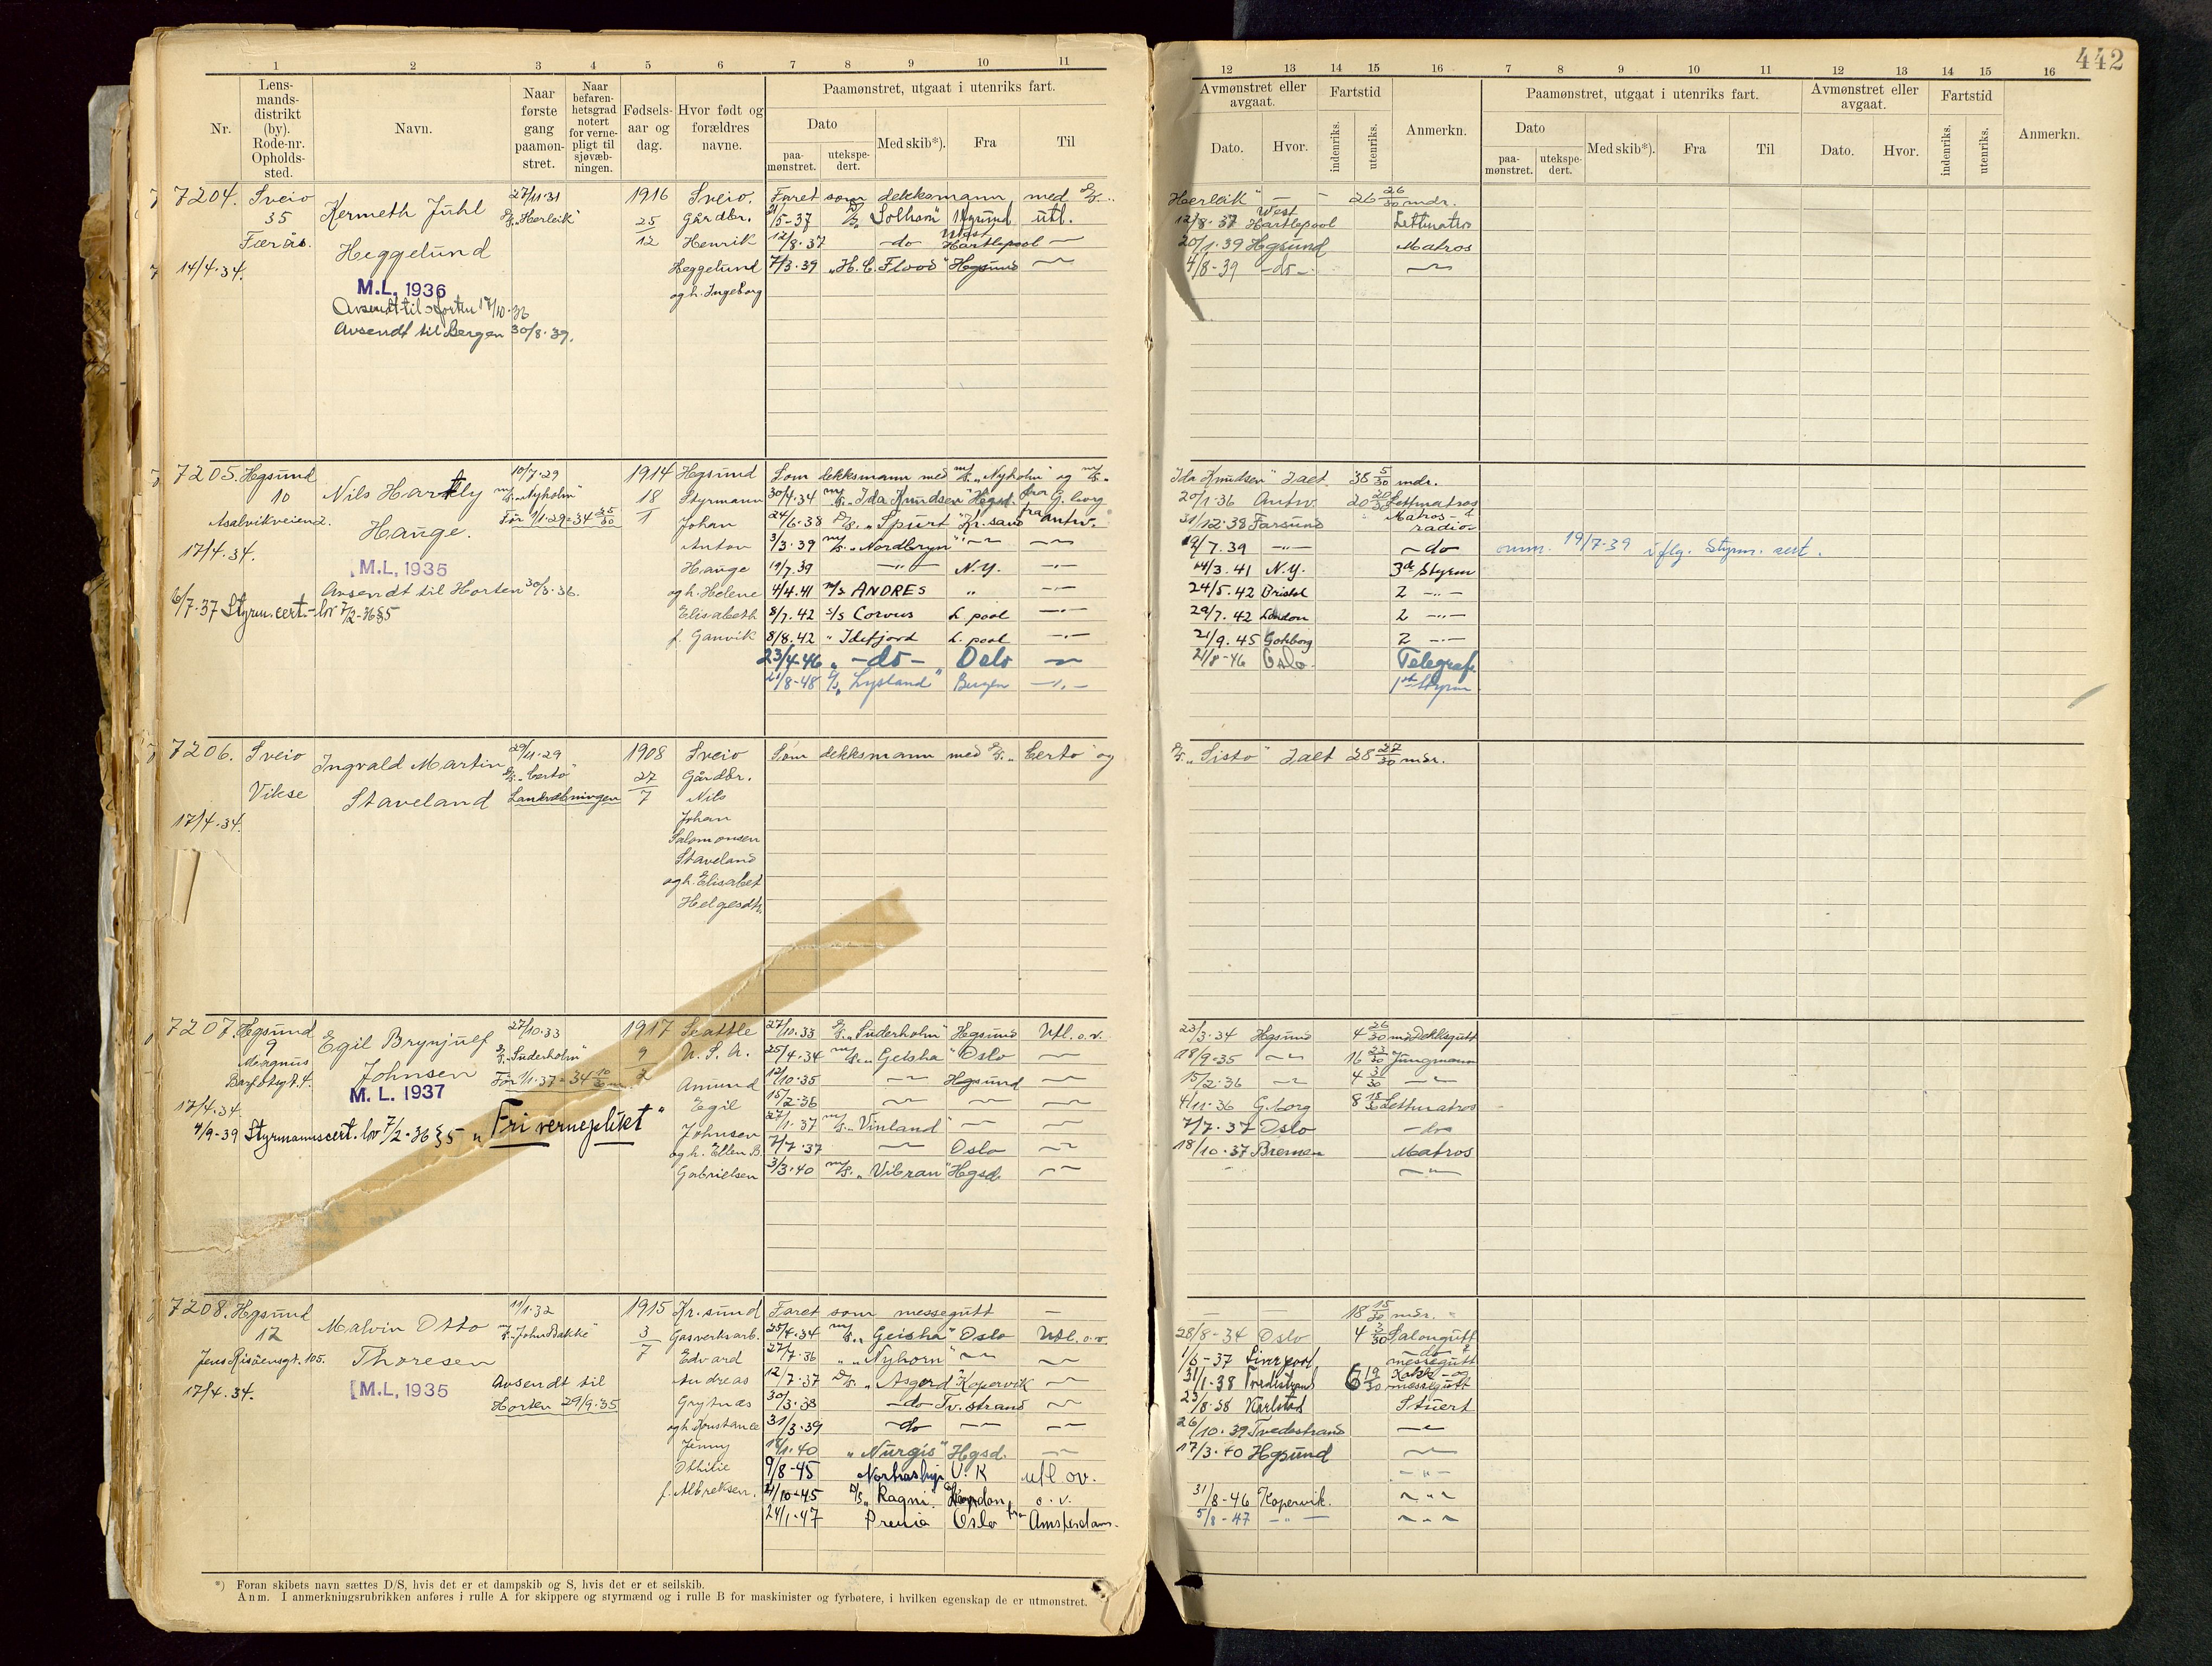 442
1 2 3 4 5 6 7 8 9 10 11
12 13 14 15 16 7 8 9 10 11 12 13 14 15 16
Nr.
Lens-
mands-
distrikt
(by).
Rode-nr.
Opholds-
sted.
Navn.
Naar
første
gang
paamøn-
stret.
Naar
befaren-
hetsgrad
notert
for verne-
pligt til
sjøvæb-
ningen.
Fødsels-
aar og
dag.
Hvor født og
forældres
navne.
Paamønstret, utgaat i utenriks fart.
Dato
paa-
mønstret.
utekspe-
dert.
Med skib*).
Fra
Til
Avmønstret eller
avgaat.
Dato.
Hvor.
Fartstid
indenriks.
utenriks.
Anmerkn.
Paamønstret, utgaat i utenriks fart.
Dato
paa-
mønstret.
utekspe-
dert.
Med skib*).
Fra
Til
Avmønstret eller
avgaat.
Dato.
Hvor.
Fartstid
indenriks.
utenriks.
Anmerkn.
7204. Sveio
35
Færås.
14/4.34.
Kermeth Juhl
Heggelund
M.L, 1936
Avsendt til Horten 17/10.36
Avsendt til Bergen 30/8.39.
27/11.31
D/S. "Herleik"
1916
25
12
Sveio.
Gårdbr.
Henrik
Heggelund
og h. Ingeborg
Faret som dekksmann med D/S. "
Herleik" — - 26 26/30 mdr.
21/5-37 D/S. "Solhom" Hgsund utl.
12/8.37 West Hartlepool Lettmatros
12/8.37 -do- West Hartlepool —
20/1.39 Hgsund Matros
7/3.39 "H. C. Flood" Hgsund —
4/8-39 -do-
7205. Hgsund
10
Asalvikveien 2.
17/4.34.
6/7.37 Styrm.cert. - lov 7/2-36 §5
Nils Hartly
Hauge.
M.L, 1935
Avsendt til Horten 30/3.36.
10/7.29
m/S. "Nyholm"
Før 1/1.29 = 34 25/30
1914
18
1
Hgsund
Styrmann
Johan
Anton
Hauge
og h. Helene
Elisabeth
f. Ganvik
Som dekksmann med m/S. "Nyholm" og m/S. "
Ida Knudsen" Ialt 38 5/30 mdr.
30/4.34 m/S. "Ida Knudsen" Hgsd. fra G.borg
20/1.36 Antw. 20 20/30 Lettmatros
24/6.38 D/S. "Spurt" Kr.sand fra Antw.
31/12.38 Farsund Matros - & radio-
3/3.39 m/S. "Nordbryn" — —
19/7.39 — -do
omm. 19/7-39 iflg. Styrm. sert.
19/7.39 — " — N.Y. —
14/3.41 N.Y. 3de Styrm
4/4.41 m/s ANDRES " —
24/5.42 Bristol 2 — " —
8/7.42 s/s Corvus L.pool —
29/7.42 London 2 — " —
8/8.42 " Idefjord L.pool —
21/9.45 Gotborg 2 — " —
23/4-46 " -do- " Oslo —
21/8-46 Oslo. Telegraf.
21/8-48 S/S "Lysland" Bergen —
1st Styrm
7206. Sveio
Vikse
17/4.34.
Ingvald Martin
Staveland
29/11.29
D/S. "Certo"
Landvæbningen
1908
27
7
Sveio
Gårdbr.
Nils
Johan
Salomonsen
Staveland
og h. Elisabet
Helgesdtr.
Som dekksmann med D/S. "Certo" og
D/S. "Sisto" Ialt 28 27/30 mdr.
7207. Hgsund
9
Magnus
Barfotsgt. 4.
17/4.34.
4/9-39 Styrmannscert. lov 7/2-36 §5 "Fri verneplikt"
Egil Brynjulf
Johnsen
M. L. 1937
27/10.33
D/S. "Suderholm"
Før 1/1.37 = 34 10/30 m.
1917
9
2
Seattle
U. S. A.
Amund
Egil
Johnsen
og h. Ellen B.
Gabrielsen
27/10.33 D/S. "Suderholm" Hgsund Utl. o.v.
23/3.34 Hgsund 4 26/30 md Dekksgutt
25/4.34 m/S. "Geisha" Oslo —
18/9-35 — 16 23/30 Jungmann
12/10.35 — Hgsund —
15/2.36 — —
15/2.36 — — —
4/11.36 G.borg 8 18/30 Lettmatros
27/1.37 m/S. "Vinland" — —
7/7.37 Oslo -do
7/7.37 — Oslo —
18/10.37 Bremen Matros
3/3.40 m/S. "Vibran" Hgsd. —
7208. Hgsund
12
Jens Risöensgt. 105.
17/4.34.
Malvin Otto
Thoresen
M.L, 1935
Avsendt til
Horten 29/9.35
11/1.32
m/S. "John Bakke"
1915
3
7
Kr.sund
Gasverksarb.
Edvard
Andreas
Grytnes
og h. Konstance
Jenny
Othilie
f. Albreksen.
Faret som messegutt —
— — 18 15/30 mdr.
25/4.34 m/S. "Geisha" Oslo Utl. o.v.
28/8-34 Oslo 4 3/30 Salongutt
27/7.36 " "Nyhorn" — —
1/6-37 Liverpool -do & messegutt
12/7.37 D/S. "Asgerd" Kopervik —
31/1.38 Tvedestrand 6 19/30 Kokk- og messegutt
30/3.38 -do- Tv.strand —
23/8.38 Karlstad Stuert
31/3.39 -do — —
26/10.39 Tvedestrand —
18/1.40 "Nurgis" Hgsd. —
17/3.40 Hgsund —
9/8-45 Norhaslug U.K utl ov.
21/10-45 D/S. "Ragni" London o.v.
31/8-46 Kopervik.
24/1.47 Preuia Oslo fra Amsterdam.
5/8-47 — " —
*) Foran skibets navn sættes D/S, hvis det er et dampskib og S, hvis det er et seilskib.
Anm. I anmerkningsrubrikken anføres i rulle A for skippere og styrmænd og i rulle B for maskinister og fyrbøtere, i hvilken egenskap de er utmønstret.